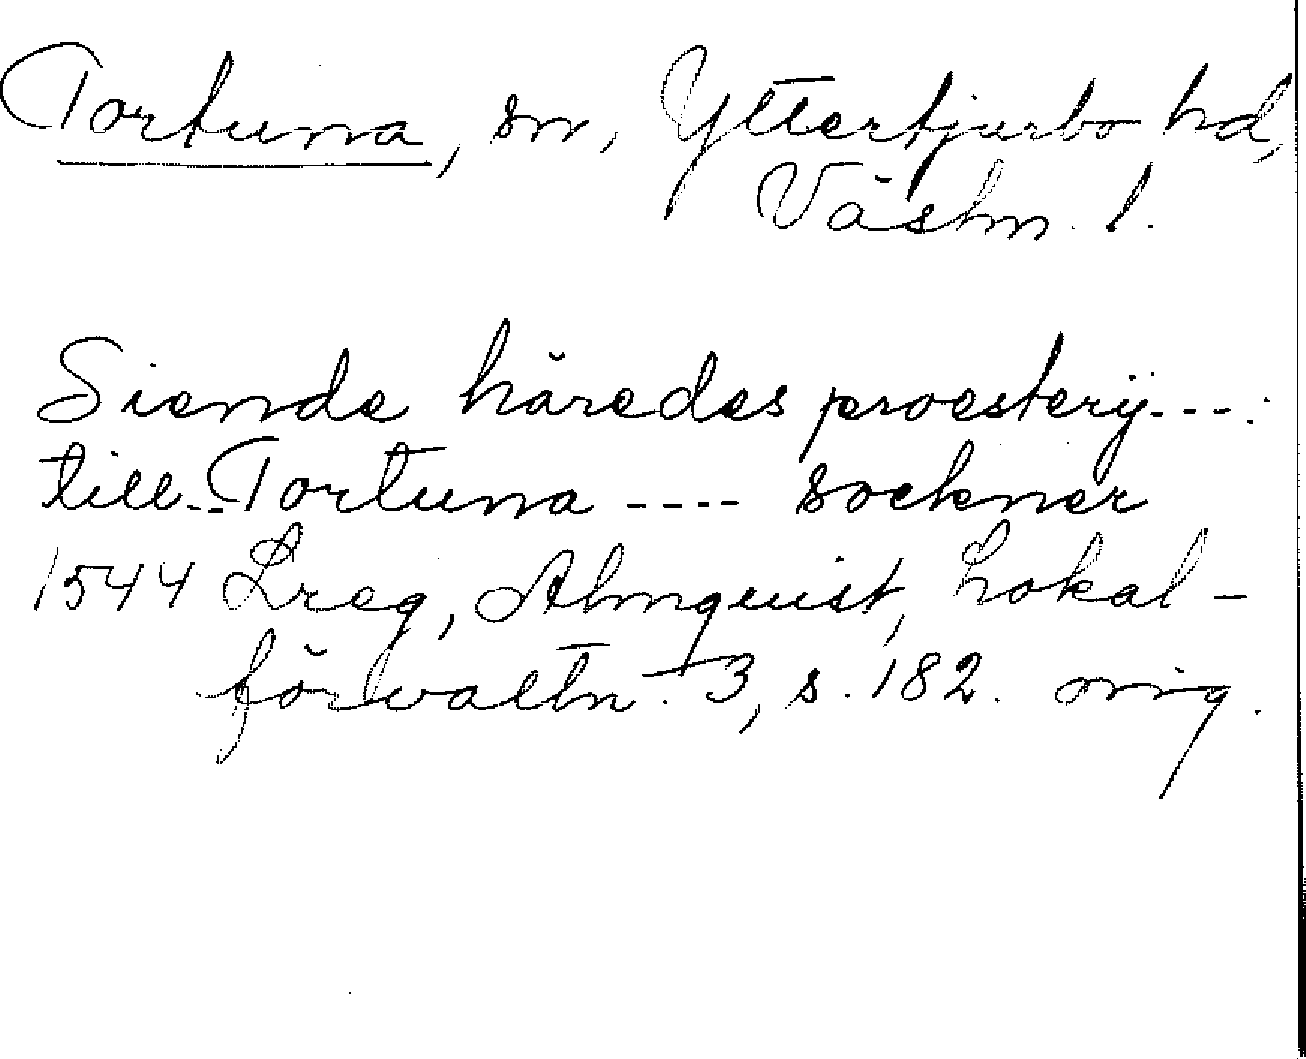 Tortuna, sn, Yttertjurbo hd,
Västm. l.
Siende häredes proesterij---.
till--Tortuna ---- sockner
1544 Lreg, Almquist, Lokal-
förvaltn. 3, s. 182. orig.